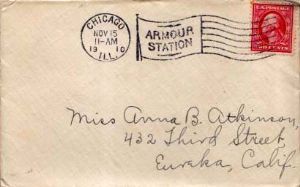 CHICAGO
NOV 15
11-AM
1910
ILL.
ARMOUR
STATION
Miss Anna B. Atkinson,
432 Third Street,
Eureka, Calif.